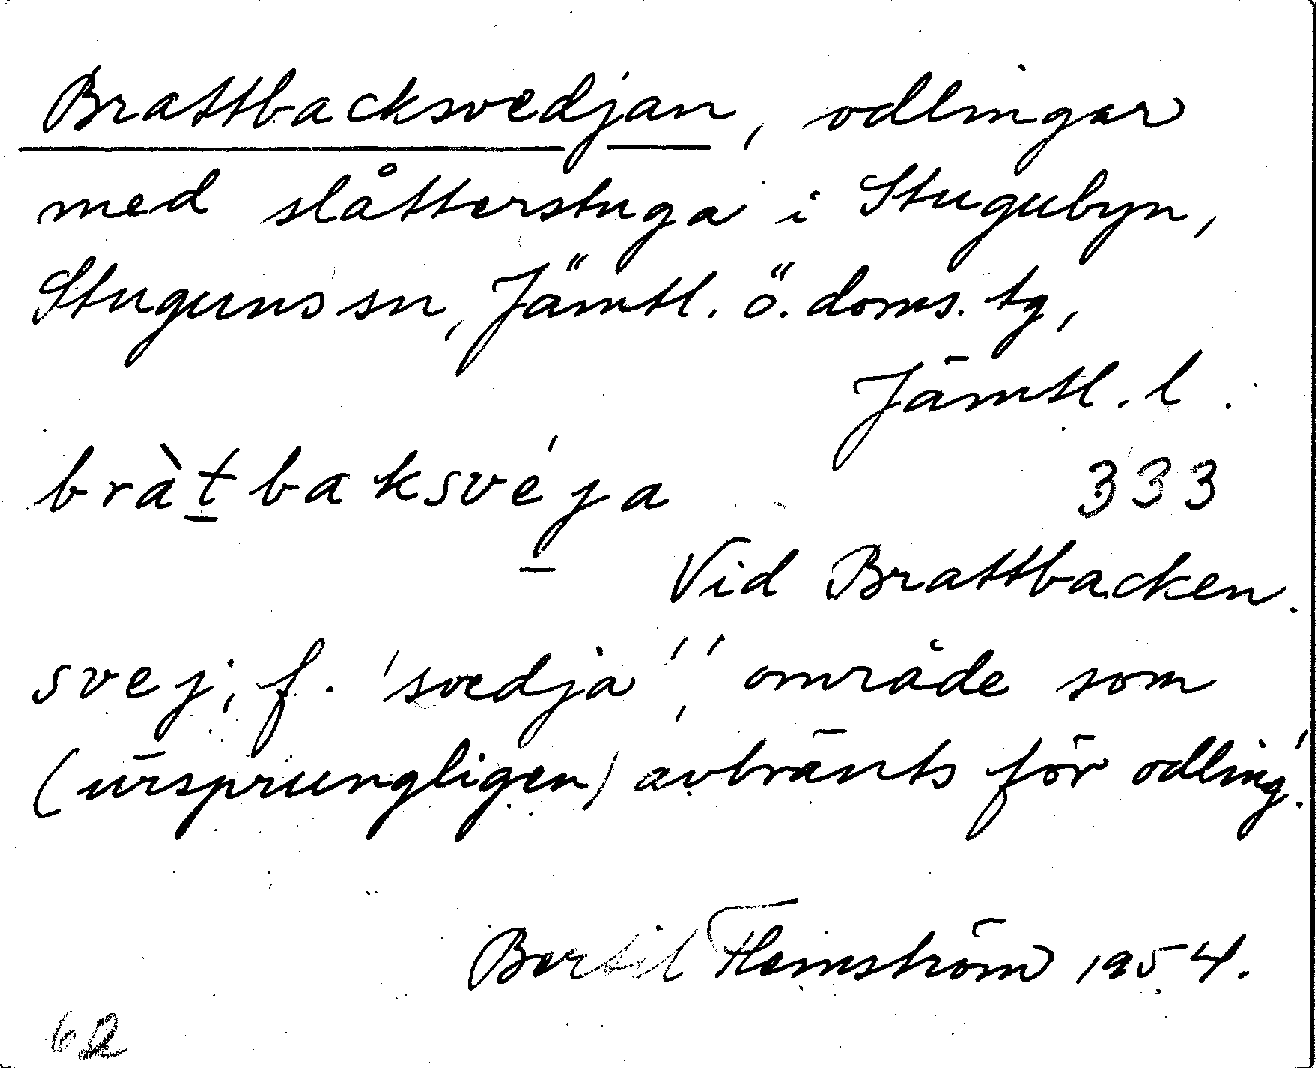 Brattbacksvedjan, odlingar
med slåtterstuga i Stugubyn,
Stuguns sn, Jämtl. ö. doms. tg,
Jämtl. l.
bràt̲baksvéj̲a 333
Vid Brattbacken.
svej, f. 'svedja', 'område som
(ursprungligen) avbränts för odling'.
Bertil Flemström 1954.
62